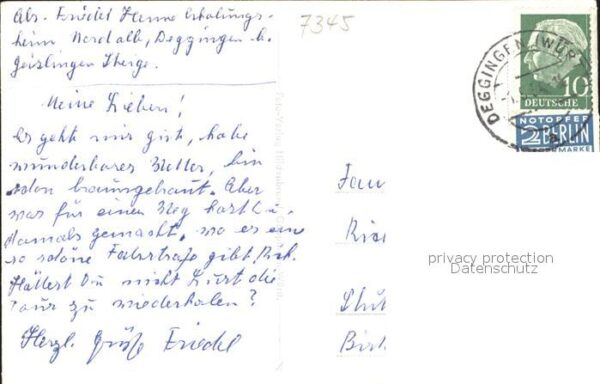 Abs. Friedel Henne Erholungs-
heim Nordalb, Deggingen b.
Geislingen Steige.
7345
Meine Lieben!
Es geht mir gut, habe
wunderbares Wetter, bin
schon braungebrant. Aber
was für einen Weg hast Du
damals gemacht, wo es eine
so schöne Fahrstraße gibt,
Hättest Du nicht Lust die
Tour zu wiederholen?
Herzl. Grüße Friedel
Fam
DEGGINGEN (WÜRT
10
DEUTSCHE
NOTOPFER
2 BERLIN
privacy protection
Datenschutz